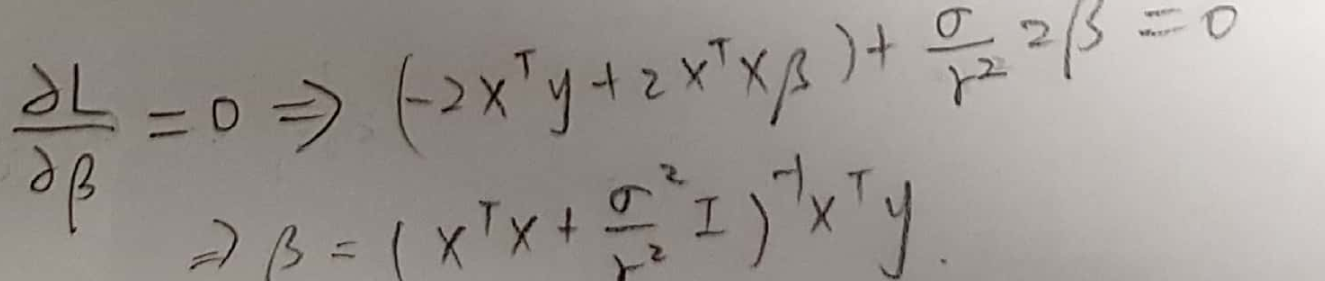 ∂L/∂β = 0 ⇒ (-2Xᵀy + 2XᵀXβ) + σ/r² 2β = 0
⇒ β = (XᵀX + σ²/r² I)⁻¹Xᵀy.